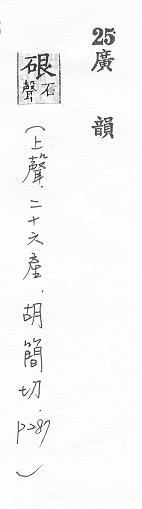 25廣韻
硍石聲
（上聲．二十六產．胡簡切．P287）